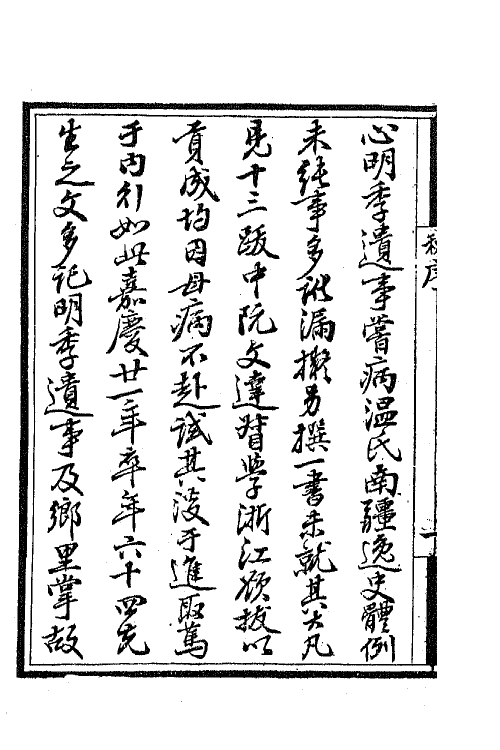 心明季遺事嘗病温氏南疆逸史體例
未純事多詿漏擬另撰一書未就其大凡
見十三跋中阮文達督學浙江欲拔以
貢成均因母病不赴試其淡于進取篤
于内行如此嘉慶廿一年卒年六十四先
生之文多記明季遺事及鄉里掌故
序
一